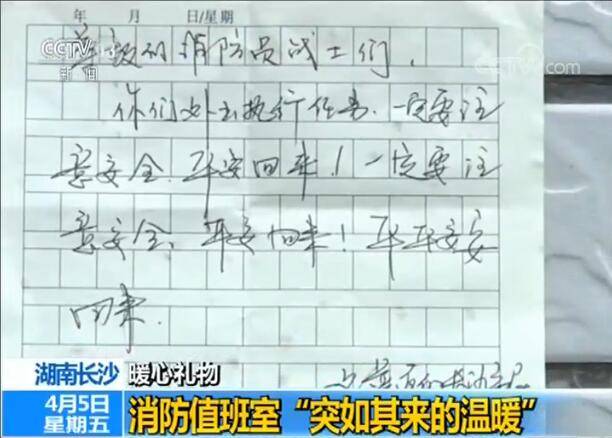 CCTV 13
新闻
央视网
cctv.com
年 月 日/星期
尊敬的消防员战士们,
你们外出执行任务,一定要注
意安全,平安回来!一定要注
意安全,平安回来!平平安安
回来.
湖南长沙 暖心礼物
4月5日
星期五
消防值班室“突如其来的温暖”